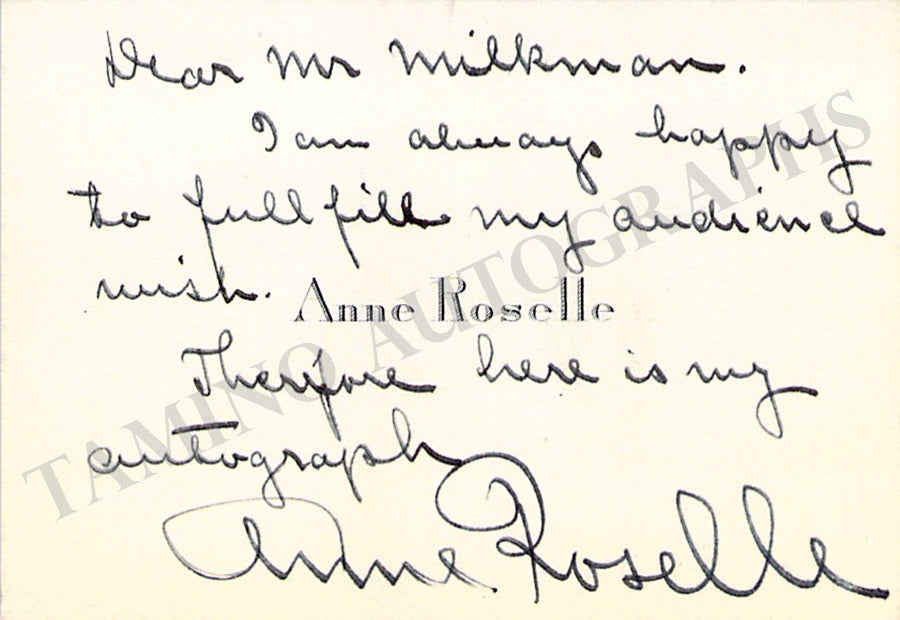 Dear Mr Milkman.
I am always happy
to full fill my audience
wish.
Anne Roselle
Therefore here is my
autograph
Anne Roselle
TAMINO AUTOGRAPHS